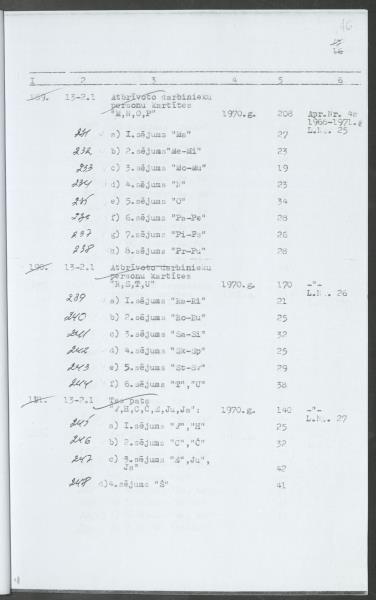 46
16
1 2 3 4 5 6
189. 13-2.1 Atbrīvoto darbinieku
personu kartītes
"M,N,O,P" 1970.g. 208 Apr.Nr. 4a
1966-1971.g
L.Nr. 25
231 a) 1.sējums "Ma" 27
232 b) 2.sējums"Me-Mi" 23
233 c) 3.sējums "Mo-Mu" 19
234 d) 4.sējums "N" 23
235 e) 5.sējums "O" 34
236 f) 6.sējums "Pa-Pe" 28
237 g) 7.sējums "Pi-Po" 26
238 h) 8.sējums "Pr-Pu" 28
190. 13-2.1 Atbrīvoto darbinieku
personu kartītes
"R,S,T,U" 1970.g. 170 -"-
L.Nr. 26
239 a) 1.sējums "Ra-Ri" 21
240 b) 2.sējums "Ro-Ru" 25
241 c) 3.sējums "Sa-Si" 32
242 d) 4.sējums "Sk-Sp" 25
243 e) 5.sējums "St-Sv" 29
244 f) 6.sējums "T","U" 38
191. 13-2.1 Tas pats
1970.g. 140 -"-
L.Nr. 27
245 a) 1.sējums "F","H" 25
246 b) 2.sējums "C","Č" 32
247 c) 3.sējums "E","Ju",
Ja" 42
248 d)4.sējums "Š" 41